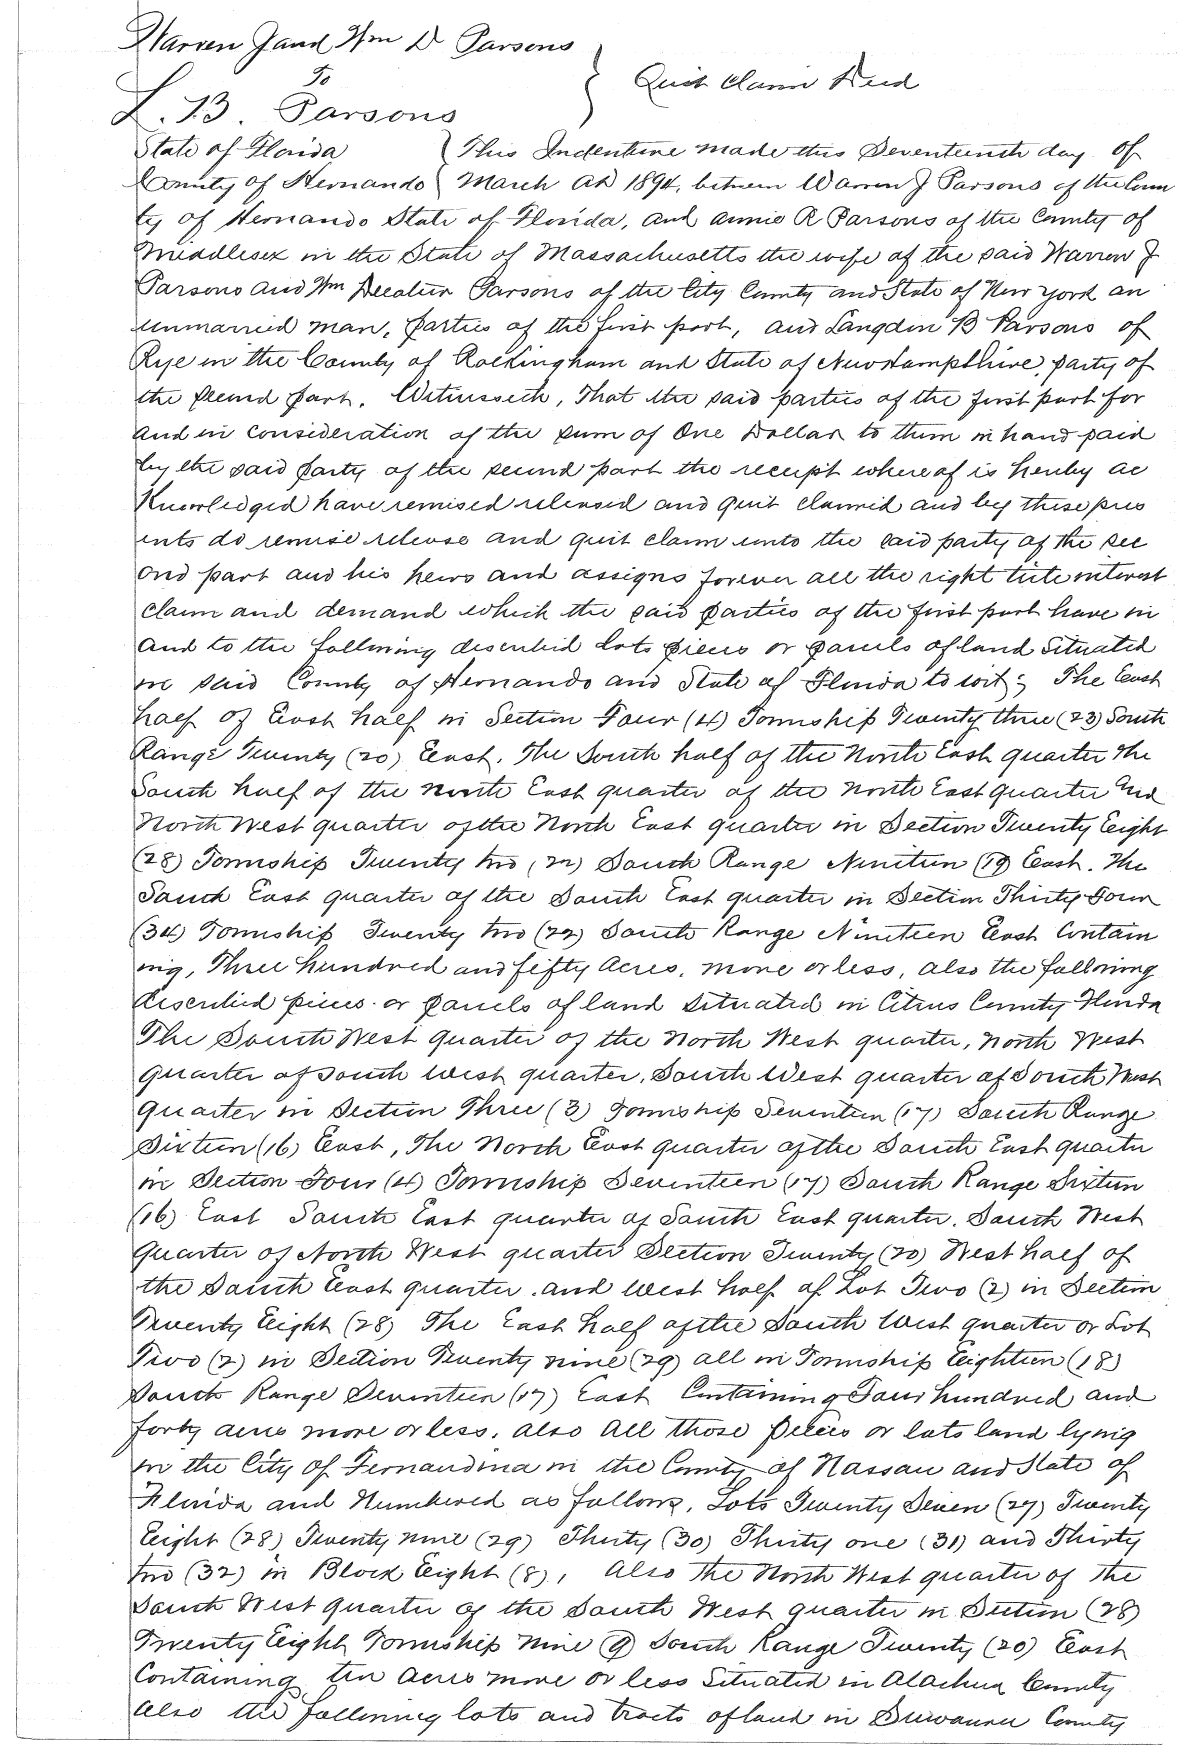 Warren J and Wm D Parsons
To
Quit Claim Deed
L. B. Parsons
State of Florida
County of Hernando
This Indenture made this Seventeenth day of
March AD 1894, between Warren J Parsons of the Coun
ty of Hernando State of Florida, and Annie R Parsons of the County of
Middlesex in the State of Massachusetts the wife of the said Warren J
Parsons and Wm Decatur Parsons of the City County and State of New York an
unmarried man, parties of the first part, and Langdon B Parsons of
Rye in the County of Rockingham and State of New Hampshire, party of
the second part. Witnesseth, That the said parties of the first part for
and in consideration of the sum of One Dollar to them in hand paid
by the said party of the second part the receipt whereof is hereby ac
Knowledged have remised released and quit claimed and by these pres
ents do remise release and quit claim unto the said party of the sec
ond part and his heirs and assigns forever all the right title interest
claim and demand which the said parties of the first part have in
and to the following described lots pieces or parcels of land situated
in said County of Hernando and State of Florida to wit; The East
half of East half in Section Four (4) Township Twenty three (23) South
Range Twenty (20) East. The South half of the North East quarter the
South half of the north East quarter of the north East quarter and
North West quarter of the North East quarter in Section Twenty Eight
(28) Township Twenty two (22) South Range Nineteen (19) East. The
South East quarter of the South East quarter in Section Thirty Four
(34) Township Twenty two (22) South Range Nineteen East Contain
ing, Three hundred and fifty Acres, more or less, also the following
described pieces or parcels of land situated in Citrus County Florida
The South West quarter of the North West quarter, North West
quarter of South West quarter, South West quarter of South West
quarter in Section Three (3) Township Seventeen (17) South Range
Sixteen (16) East, The North East quarter of the South East quarter
in Section Four (4) Township Seventeen (17) South Range Sixteen
(16) East South East quarter of South East quarter. South West
quarter of North West quarter Section Twenty (20) West half of
the South East quarter and West half of Lot Two (2) in Section
Twenty Eight (28) The East half of the South West quarter or Lot
Two (2) in Section Twenty nine (29) all in Township Eighteen (18)
South Range Seventeen (17) East Containing Four hundred and
forty acres more or less. also All those peices or lots land lying
in the City of Fernandina in the County of Nassau and State of
Florida and Numbered as follows, Lots Twenty Seven (27) Twenty
Eight (28) Twenty nine (29) Thirty (30) Thirty one (31) and Thirty
two (32) in Block Eight (8), Also the North West quarter of the
South West quarter of the South West quarter in Section (28)
Twenty Eight Township Nine (9) South Range Twenty (20) East
Containing ten acres more or less situated in Alachua County
Also the following lots and tracts of land in Suwannee County